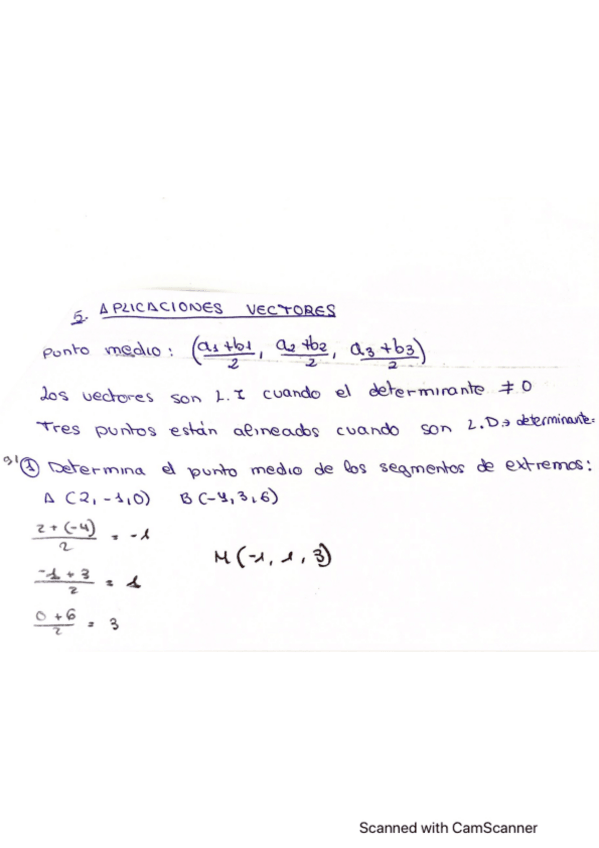 5. APLICACIONES VECTORES
punto medio: (a1+b1/2, a2+b2/2, a3+b3/2)
Los vectores son L.I cuando el determinante ≠ 0
Tres puntos están alineados cuando son L.D → determinante=
① Determina el punto medio de los segmentos de extremos:
A (2, -1, 0) B (-4, 3, 6)
2 + (-4)/2 = -1
M (-1, 1, 3)
-1 + 3/2 = 1
0 + 6/2 = 3
Scanned with CamScanner